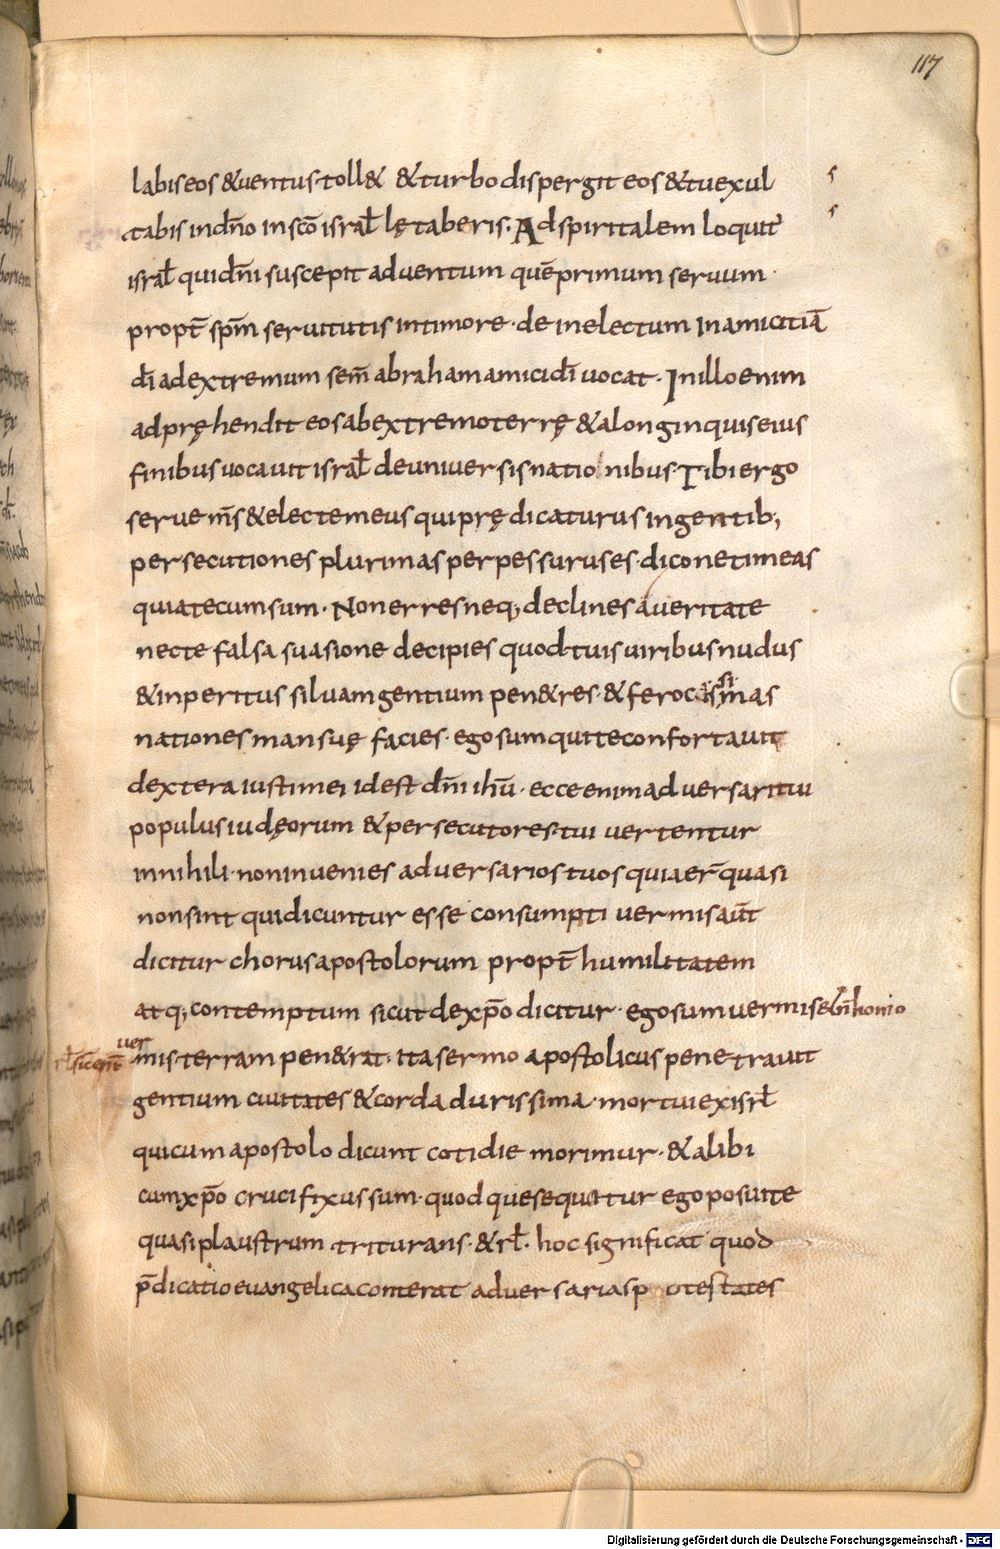 117
labis eos & uentus toll& & turbo disperg&it eos & tu exul
tabis in dn̄o in scō israł lętaberis. Ad spiritalem loquit̄
israł qui dn̄i suscepit aduentum quē primum seruum
propt̄ sp̄m seruitutis in timore · deinelectum In amicitiā
dī ad extremum sem̄ abraham amici dī uocat · In illo enim
adpręhendit eos ab extremo terrę & a longinquis eius
finibus uocauit israł de uniuersis nationibus Tibi ergo
serue m̄s & electe meus qui prędicaturus in gentib;
persecutiones plurimas perpessurus es · dico ne timeas
quia tecum sum · Non erres neq; declines a ueritate
nec te falsa suasione decipies quod tuis uiribus nudus
& inperitus siluam gentium pen&res · & ferocissimas
nationes mansuę facies · ego sum qui te confortauit
dextera iusti mei id est dn̄i ihū · ecce enim aduersarii tui
populus iudęorum & persecutores tui uertentur
in nihili · non inuenies aduersarios tuos quia er̄ quasi
non sint qui dicuntur esse consumpti uermis aūt
dicitur chorus apostolorum propt̄ humilitatem
atq; contemptum sicut de xp̄o dicitur · ego sum uermis & n̄ homo
rł sic enī uer mis terram pen&rat · ita sermo apostolicus penetrauit
gentium ciuitates & corda durissima · mortui ex isrł
qui cum apostolo dicunt cotidie morimur · & alibi
cum xp̄o crucifixus sum · quod que sequitur ego posui te
quasi plaustrum triturans · & rł · hoc significat quod
p̄dicatio euangelica conterat aduersarias potestates
Digitalisierung gefördert durch die Deutsche Forschungsgemeinschaft - DFG